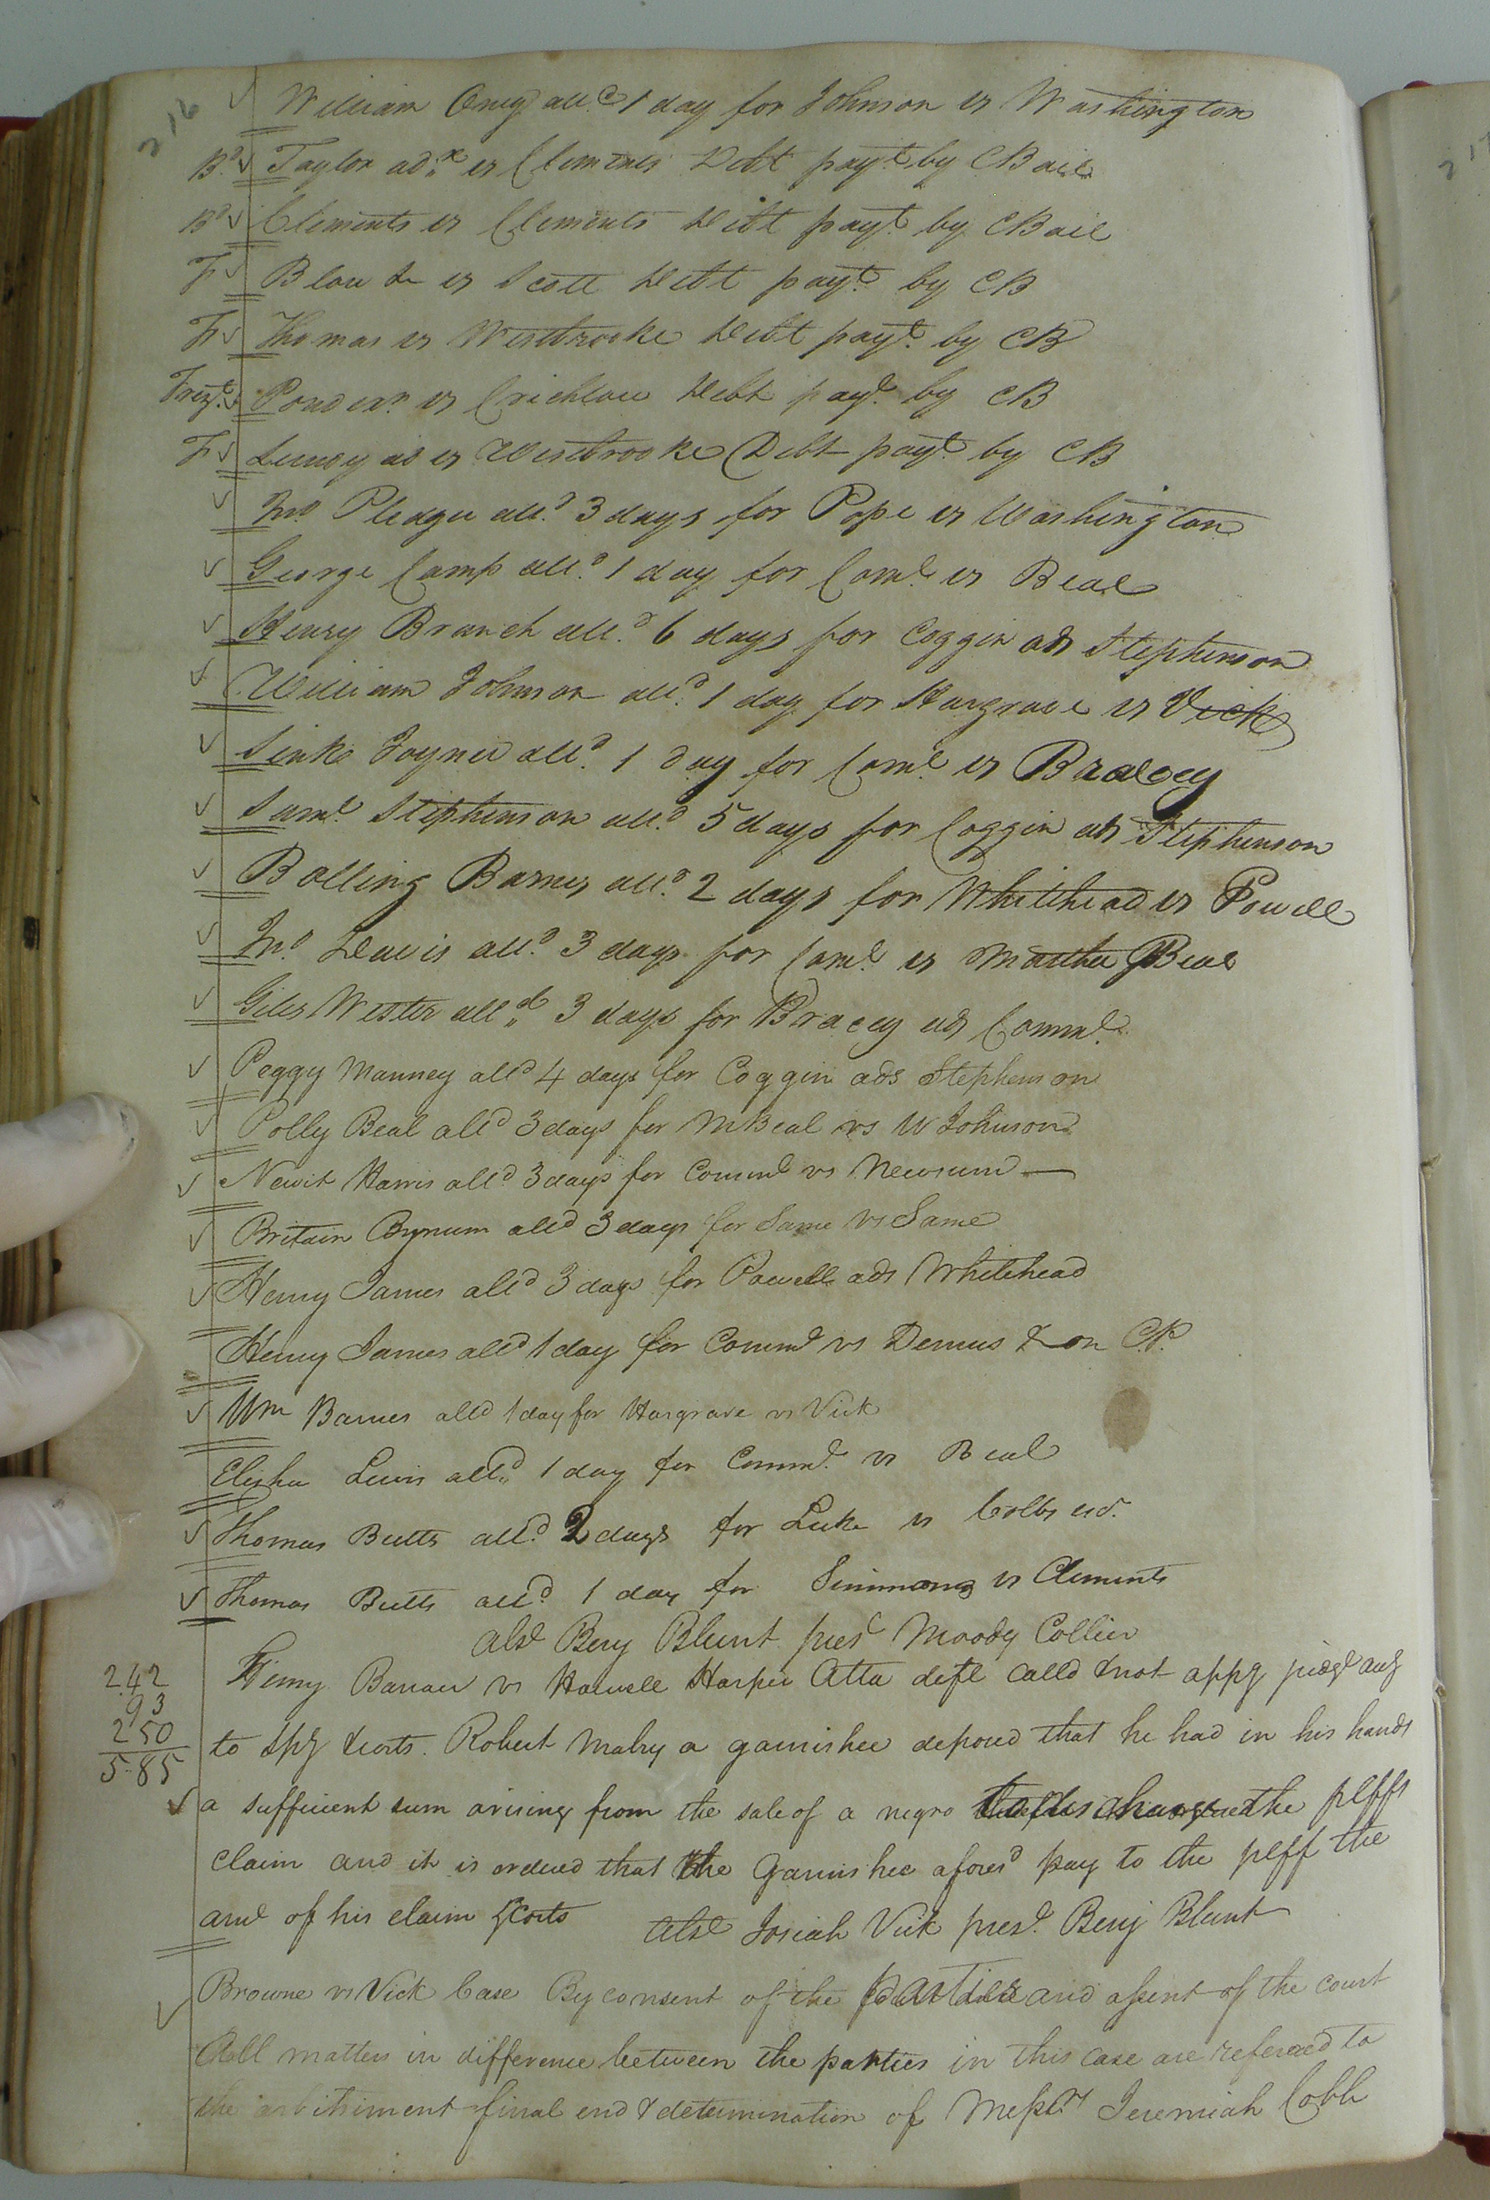 216
William all.d 1 day for Johnson vs Washington
B.d Taylor ad.x vs Clements Debt pay.t by CBail
B.d Clements vs Clements Debt pay.t by CBail
F Blow & vs Scott Debt pay.t by CB
F Thomas vs Westbrooke Debt pay.t by CB
Pond exr vs Crichlow Debt pay.t by CB
F Lundy ad vs Westbrooke Debt pay.t by CB
Jno Pledger all.d 3 days for Pope vs Washington
George Camp all.d 1 day for Com.l vs Beal
Henry Branch all.d 6 days for Coggin ads Stephenson
William Johnson all.d 1 day for Hargrave vs Vick
Joyner all.d 1 day for Com.l vs Bracey
Sam.l Stephenson all.d 5 days for Coggin ads Stephenson
Bolling Barnes all.d 2 days for Whitehead vs Powell
Jno. Lewis all.d 3 days for Com.l vs Martha Beal
Giles Wester all.d 3 days for Bracey ads Comm.l
Peggy Manney alld 4 days for Coggin ads Stephenson
Polly Beal alld 3 days for M Beal vs W Johnson
Newit Harris alld 3 days for Comml vs Newsum
Britain Bynum alld 3 days for Same vs Same
Henry James alld 3 days for Powell ads Whitehead
Henry James alld 1 day for Comml vs Demus & on C.P.
Wm Barnes alld 1 day for Hargrave vs Vick
Elisha Lewis all.d 1 day for Comm.l vs Beal
Thomas Butts all.d 2 days for Luke vs Colbs
Thomas Butts all.d 1 day for Simmons vs Clements
abs.t Benj Blunt pres.t Moody Collier
242 Henry Barrow vs Howell Harper Atta deft calld & not appg judgt
93
250 to & costs. Robert Mabry a garnishee deposed that he had in his hands
585
a sufficient sum arising from the sale of a negro to discharge the plffs
claim and it is ordered that the Garnishee afores.d pay to the plff the
amt of his claim & Costs abs.t Josiah Vick pres.t Benj Blunt
Browne vs Vick Case By consent of the parties and assent of the court
All matters in difference between the parties in this case are refered to
the arbitriment final end & determination of Mess.rs Jeremiah Cobb